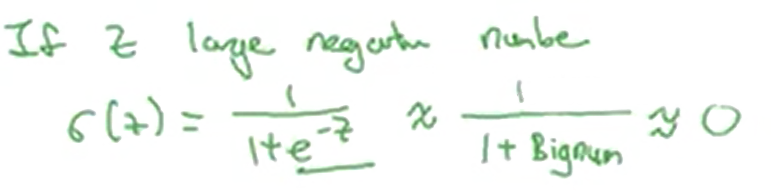 If z large negative number
σ(z) = 1 / (1 + e^-z) ≈ 1 / (1 + Bignum) ≈ 0